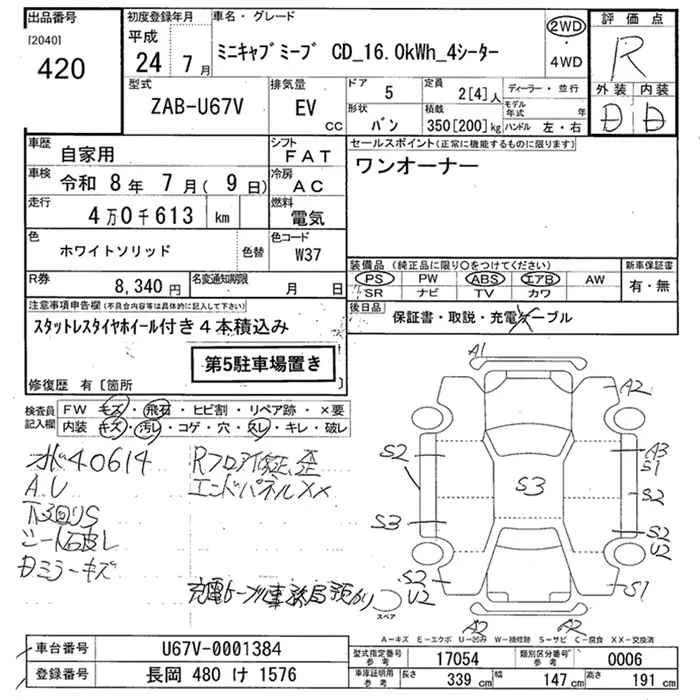 出品番号
[2040]
420
初度登録年月
平成
24 7月
車名・グレード
ミニキャブ ミーブ CD_16.0kWh_4シーター
2WD
・
4WD
評価点
R
外装 内装
D D
型式
ZAB-U67V
排気量
EV
CC
ドア
5
定員
2[4]人
ディーラー・並行
形状
バン
積載
350[200]kg
モデル年式 年
ハンドル 左・右
車歴
自家用
シフト
FAT
車検
令和 8年 7月( 9日)
冷房
AC
走行
4万0千613 km
燃料
電気
色
ホワイトソリッド
色替
色コード
W37
R券
8,340円
名変通知期限
月 日
セールスポイント(正常に機能するものに限ります)
ワンオーナー
装備品 (純正品に限り○をつけてください)
PS PW ABS エアB AW
SR ナビ TV カワ
新車保証書
有・無
後日品
保証書・取説・充電ケーブル
注意事項申告欄(不具合内容等は具体的に記入して下さい)
スタットレスタイヤホイール付き4本積込み
第5駐車場置き
修復歴 有〔箇所
検査員記入欄
FW キズ・飛石・ヒビ割・リペア跡・×要
内装 キズ・汚レ・コゲ・穴・スレ・キレ・破レ
オドメ40614
A.U
下回りS
シート汚レ
Dミラーキズ
Rフロア修正、歪
エンドパネルXX
充電ケーブル車務局預かり
A1
A2
S2
A3
S1
S3
S2
S3
S2
U2
S2
U2
S1
A2
A2
スペア
A-キズ E-エクボ U-凹み W-補修跡 S-サビ C-腐食 XX-交換済
車台番号
U67V-0001384
登録番号
長岡 480 け 1576
型式指定番号
参考
17054
類別区分番号
参考
0006
車庫証明用
参考
長さ
339 cm
幅
147 cm
高さ
191 cm